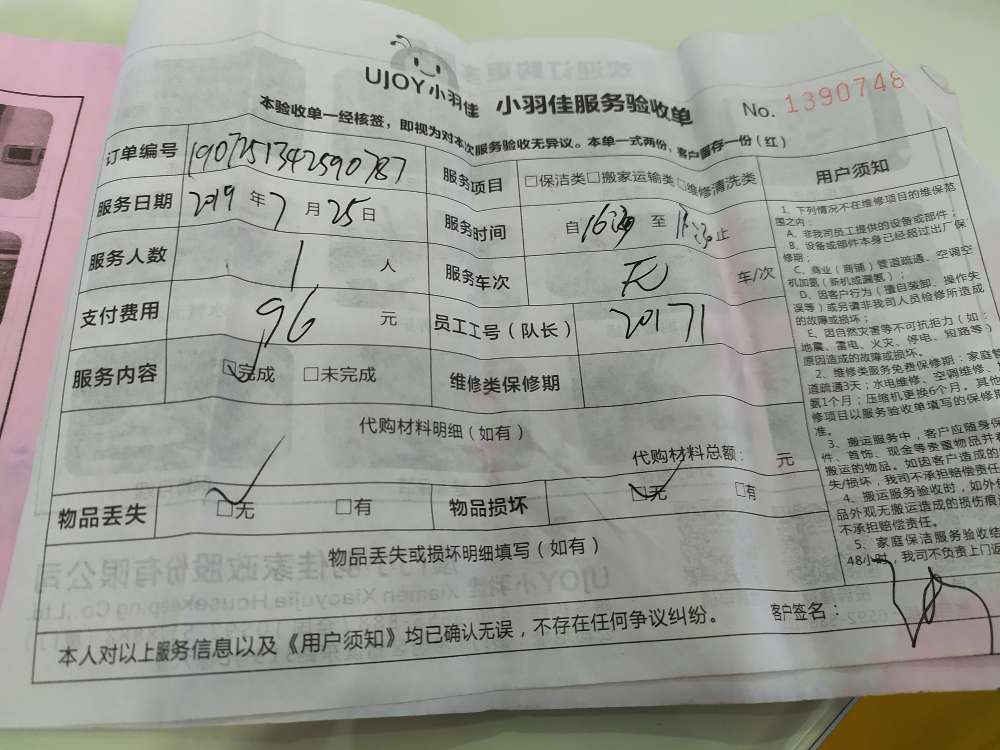 UJOY小羽佳 小羽佳服务验收单 No. 1390748
本验收单一经核签，即视为对本次服务验收无异议。本单一式两份，客户留存一份（红）
订单编号 19072517342590787 服务项目 □保洁类□搬家运输类□维修清洗类
服务日期 2019 年 7 月 25 日 服务时间 自 至 止
服务人数 1 人 服务车次 无 车/次
支付费用 96 元 员工工号（队长） 20171
服务内容 □完成 □未完成 维修类保修期
代购材料明细（如有）
代购材料总额： 元
物品丢失 □无 □有 物品损坏 □无 □有
物品丢失或损坏明细填写（如有）
本人对以上服务信息以及《用户须知》均已确认无误，不存在任何争议纠纷。 客户签名：
用户须知
1、下列情况不在维修项目的维保范
围之内：
A、非我司员工提供的设备或部件；
B、设备或部件本身已经超过出厂保
修期；
C、商业（商铺）管道疏通、空调空
机加氨（新机或漏氨）；
D、因客户行为（擅自装卸、操作失
误等）或另请非我司人员检修所造成
的故障或损坏；
E、因自然灾害等不可抗拒力（如：
地震、雷电、火灾、停电、短路等）
原因造成的故障或损坏。
2、维修类服务免费保修期：家庭管
道疏通3天；水电维修、空调维修、
氨1个月；压缩机更换6个月，其他
修项目以服务验收单填写的保修期
准。
3、搬运服务中，客户应随身保
件、首饰、现金等贵重物品并
搬运的物品。如因客户造成的
失/损坏，我司不承担赔偿责任
4、搬运服务验收时，如外包
品外观无搬运造成的损伤痕
不承担赔偿责任。
5、家庭保洁服务验收结
48小时，我司不负责上门返